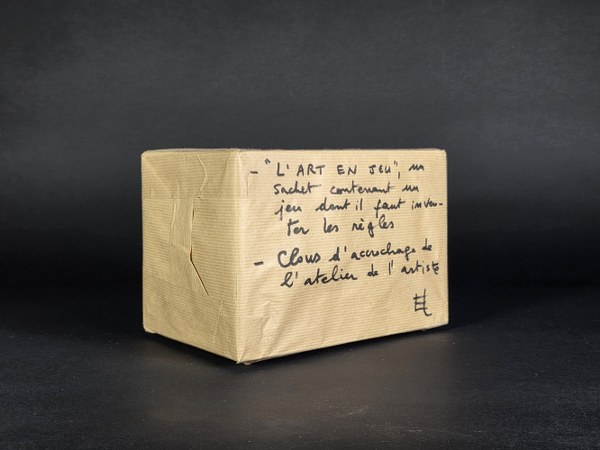 - "L'ART EN JEU", un
sachet contenant un
jeu dont il faut inven-
ter les règles
- Clous d'accrochage de
l'atelier de l'artiste